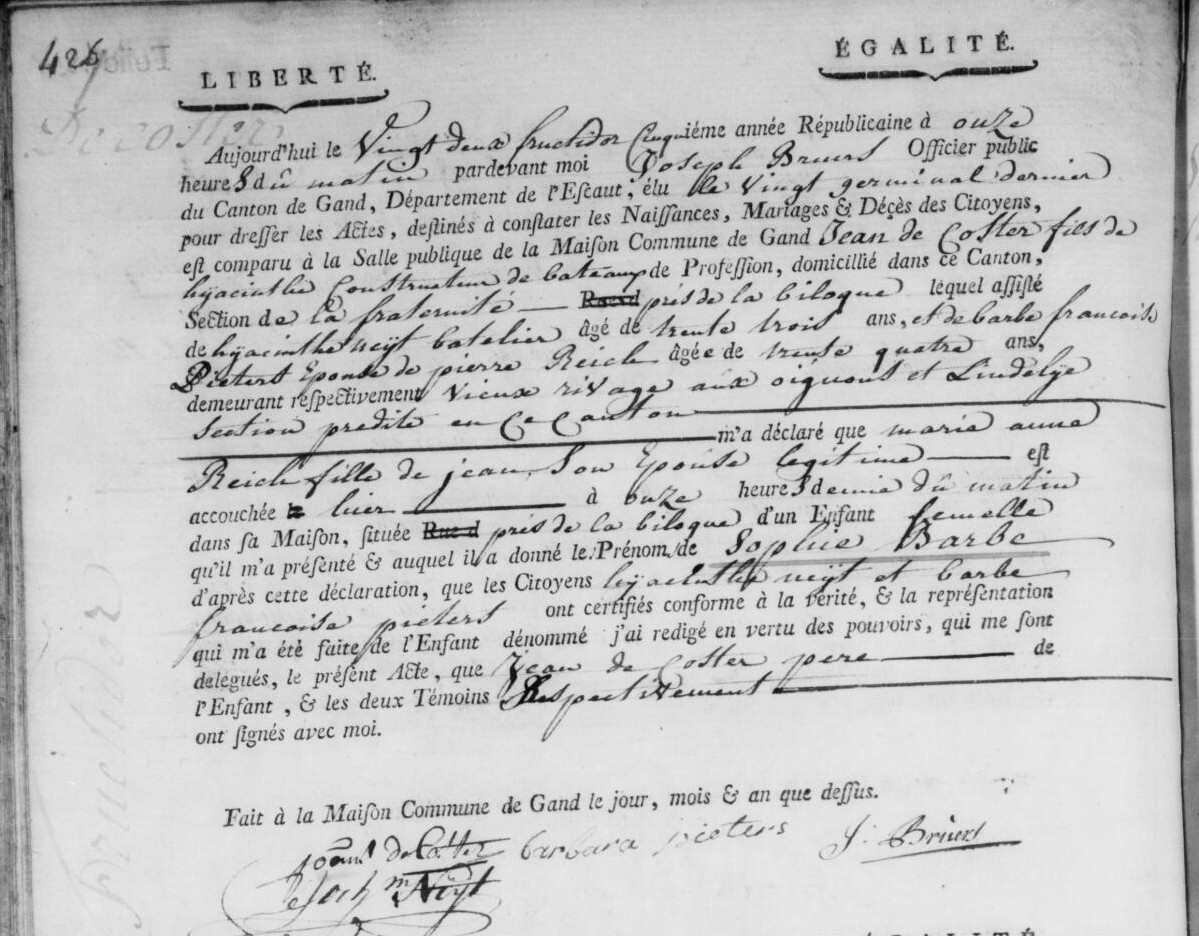 426
LIBERTÉ.
ÉGALITÉ.
De coster
Aujourd'hui le Vingt deux fructidor Cinquiéme année Républicaine à onze
heures du matin pardevant moi Joseph Bruers Officier public
du Canton de Gand, Département de l'Escaut; élu le Vingt germinal dernier
pour dresser les Actes, destinés à constater les Naissances, Mariages & Décès des Citoyens,
est comparu à la Salle publique de la Maison Commune de Gand Jean de Coster fils de
hyacinthe Constructeur de bateaux de Profession, domicillié dans ce Canton,
Section de La fraternité — Rue d près de la biloque lequel assisté
de hyacinthe neyt batelier âgé de trente trois ans, et de barbe francoise
Pieters Epouse de pierre Reich âgée de trente quatre ans,
demeurant respectivement Vieux rivage aux oignons et Lindelye
Section predite en Ce Canton
m'a déclaré que marie anne
Reich fille de jean, Son Epouse legitime — est
accouchée le hier — à onze heures demie du matin
dans sa Maison, située Rue d près de la biloque d'un Enfant femelle
qu'il m'a présenté & auquel il a donné le Prénom de Sophie Barbe
d'après cette déclaration, que les Citoyens hyacinthe neyt et barbe
francoise pieters ont certifiés conforme à la vérité, & la représentation
qui m'a été faite de l'Enfant dénommé j'ai redigé en vertu des pouvoirs, qui me sont
delegués, le présent Acte, que Jean de Coster pere — de
l'Enfant, & les deux Témoins Respectivement
ont signés avec moi.
Fait à la Maison Commune de Gand le jour, mois & an que dessus.
de Coster barbara pieters J. Bruers
Neyt
fructidor